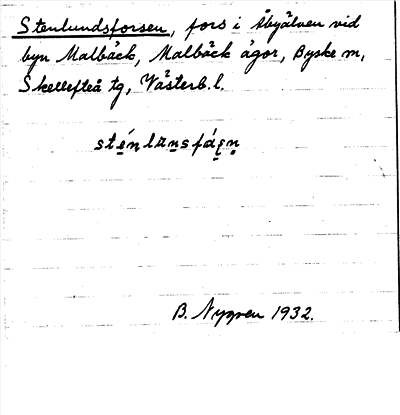 Stenlundsforsen, fors i Åbyälven vid
byn Malbäck, Malbäck ägor, Byske m,
Skellefteå tg, Västerb. l.
B. Nygren 1932.